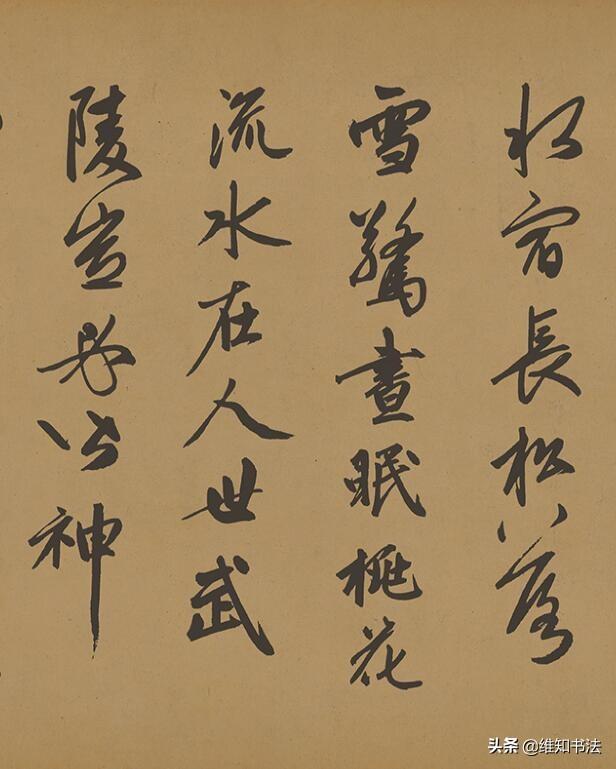 水宿長松落
雪驚晝眠桃花
流水在人世武
陵豈必皆神
头条 @维知书法